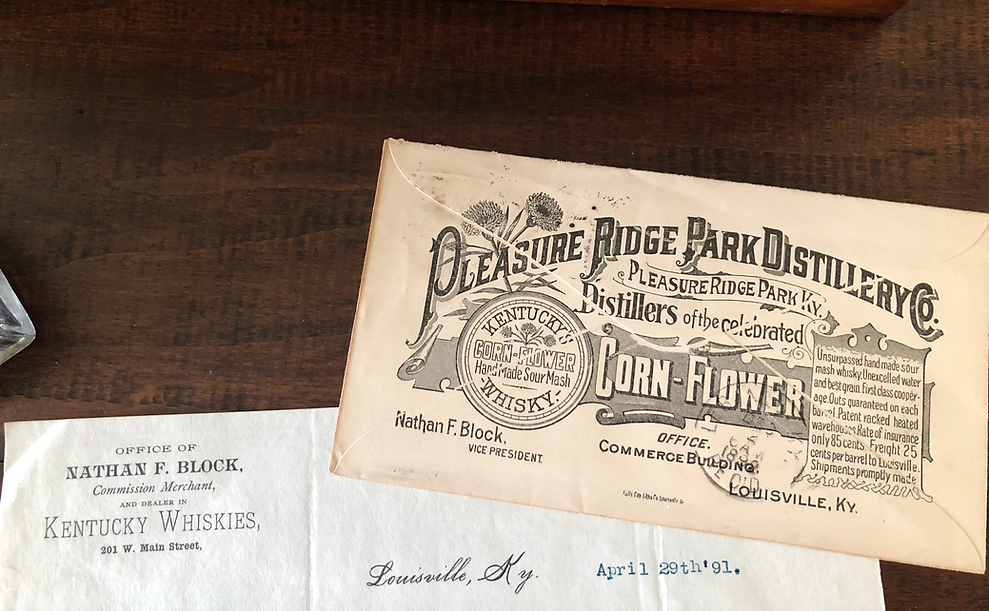 PLEASURE RIDGE PARK DISTILLERY CO.
PLEASURE RIDGE PARK KY.
Distillers of the celebrated
CORN-FLOWER
KENTUCKY'S
CORN-FLOWER
Hand Made Sour Mash
WHISKY.
Unsurpassed hand made sour
mash whisky. Unexcelled water
and best grain. First class cooper-
age. Outs guaranteed on each
barrel. Patent racked heated
warehouses Rate of insurance
only 85 cents. Freight 25
cents per barrel to Louisville.
Shipments promptly made
Nathan F. Block,
VICE PRESIDENT.
OFFICE.
COMMERCE BUILDING.
LOUISVILLE, KY.
OFFICE OF
NATHAN F. BLOCK,
Commission Merchant,
AND DEALER IN
KENTUCKY WHISKIES,
201 W. Main Street,
Louisville, Ky. April 29th'91.